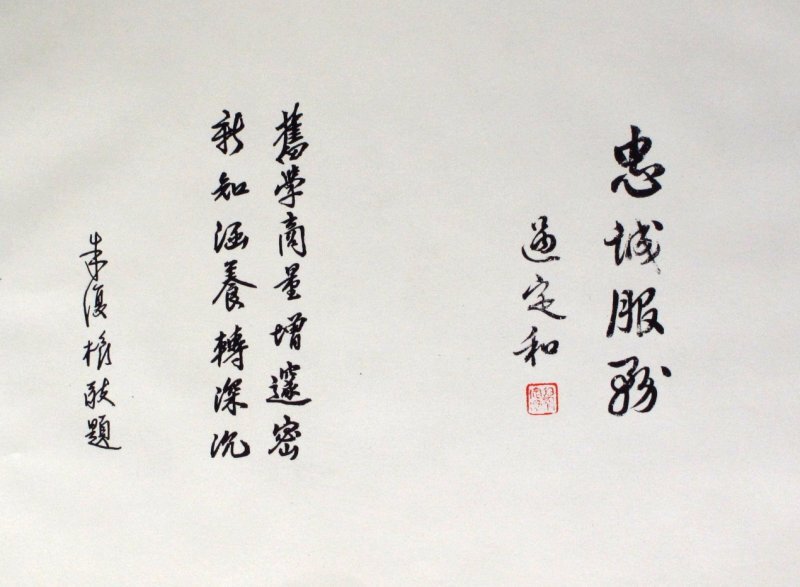 忠誠服務
過定和
舊學商量增邃密
新知涵養轉深沉
朱復權敬題